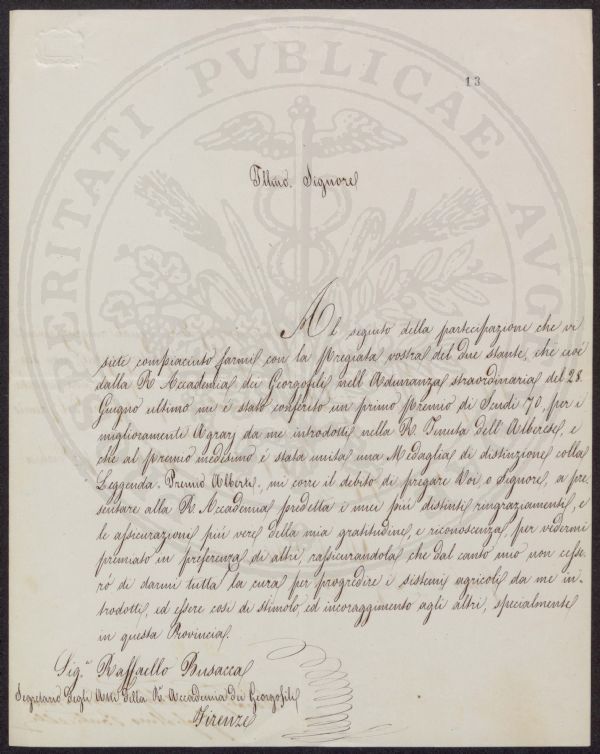 PROSPERITATI PVBLICAE AVG
13
Illmo. Signore
Al seguito della partecipazione che vi
siete compiaciuto farmi con la Pregiata vostra del due stante, che cioè
dalla R. Accademia dei Georgofili nell'Adunanza straordinaria del 28.
Giugno ultimo mi è stato conferito un primo Premio di Scudi 70, per i
miglioramenti Agrarj da me introdotti nella R. Tenuta dell'Alberese, e
che al Premio medesimo è stata unita una Medaglia di distinzione colla
Leggenda. Premio Alberti, mi corre il debito di pregare Voi o Signore, a pre-
sentare alla R. Accademia predetta i miei più distinti ringraziamenti, e
le assicurazioni più vere della mia gratitudine, e riconoscenza, per vedermi
premiato in preferenza di altri, rassicurandola che dal canto mio non cesse-
rò di darmi tutta la cura per progredire i sistemi agricoli da me in-
trodotti, ed essere così di stimolo, ed incoraggimento agli altri, specialmente
in questa Provincia.
Sig.r Raffaello Busacca
Segretario degli Atti della R. Accademia dei Georgofili
Firenze